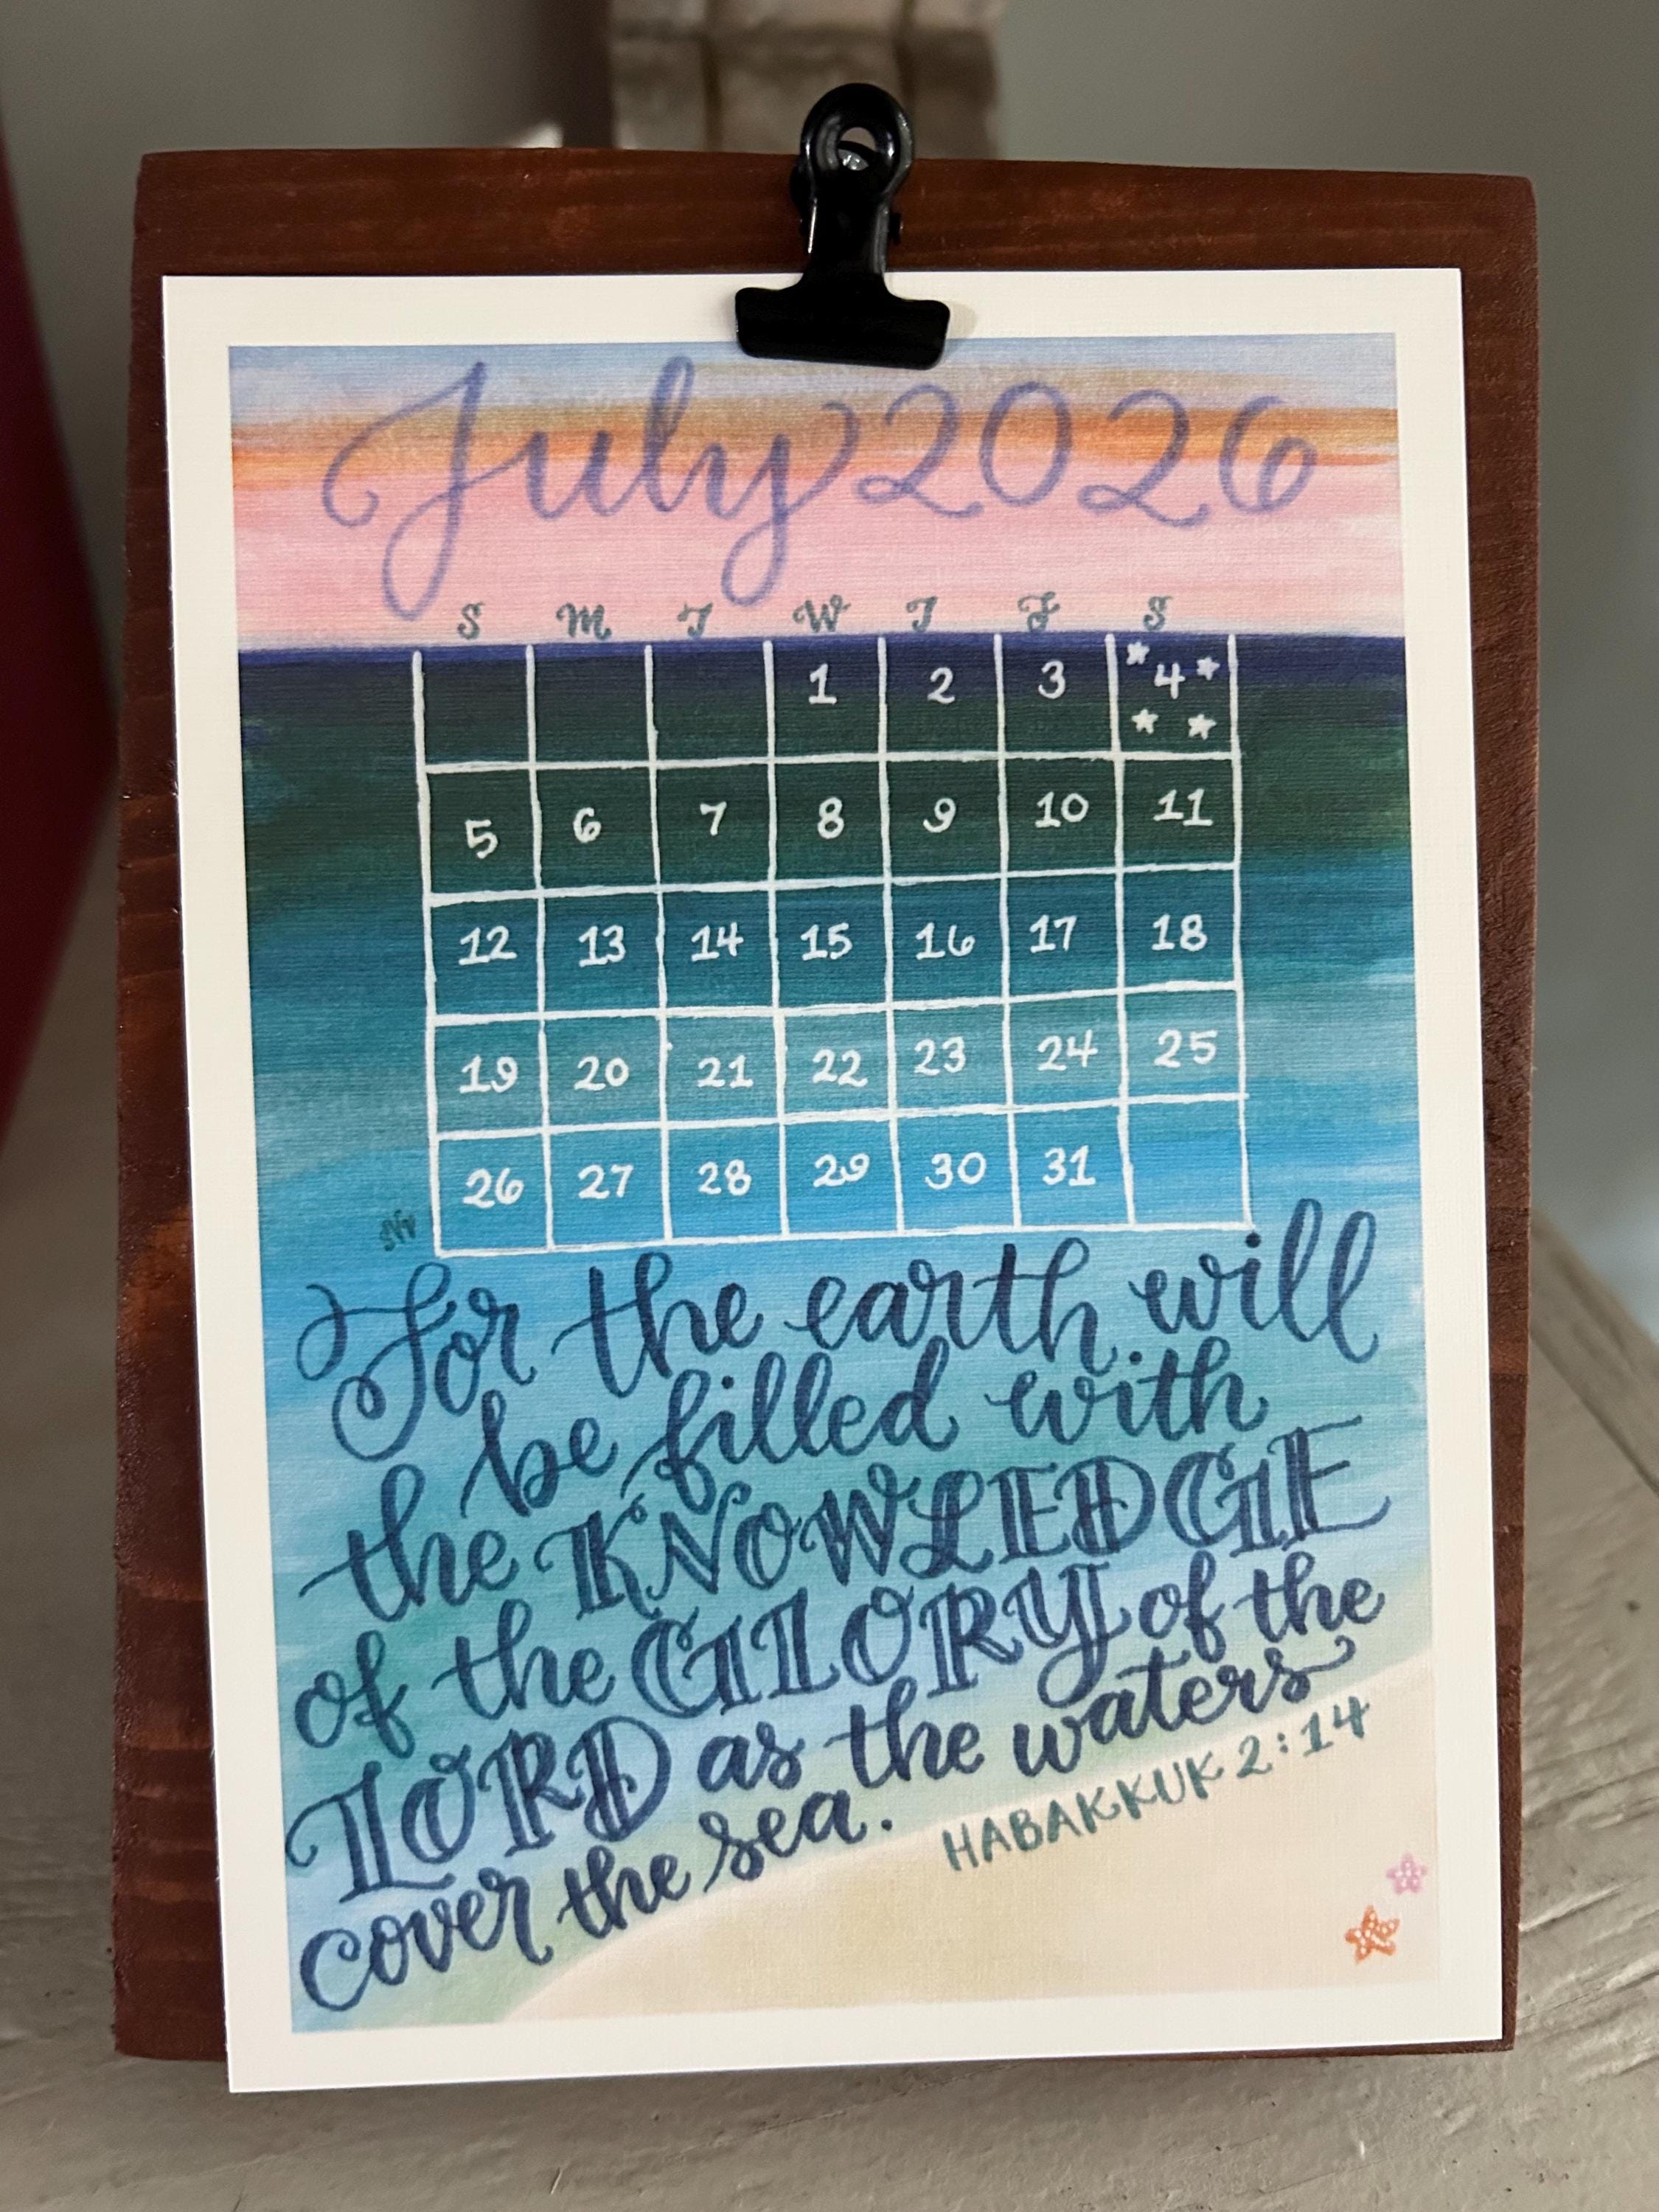 July 2026
S M T W T F S
1 2 3 4
5 6 7 8 9 10 11
12 13 14 15 16 17 18
19 20 21 22 23 24 25
26 27 28 29 30 31
For the earth will
be filled with
the KNOWLEDGE
of the GLORY of the
LORD as the waters
cover the sea.
HABAKKUK 2:14